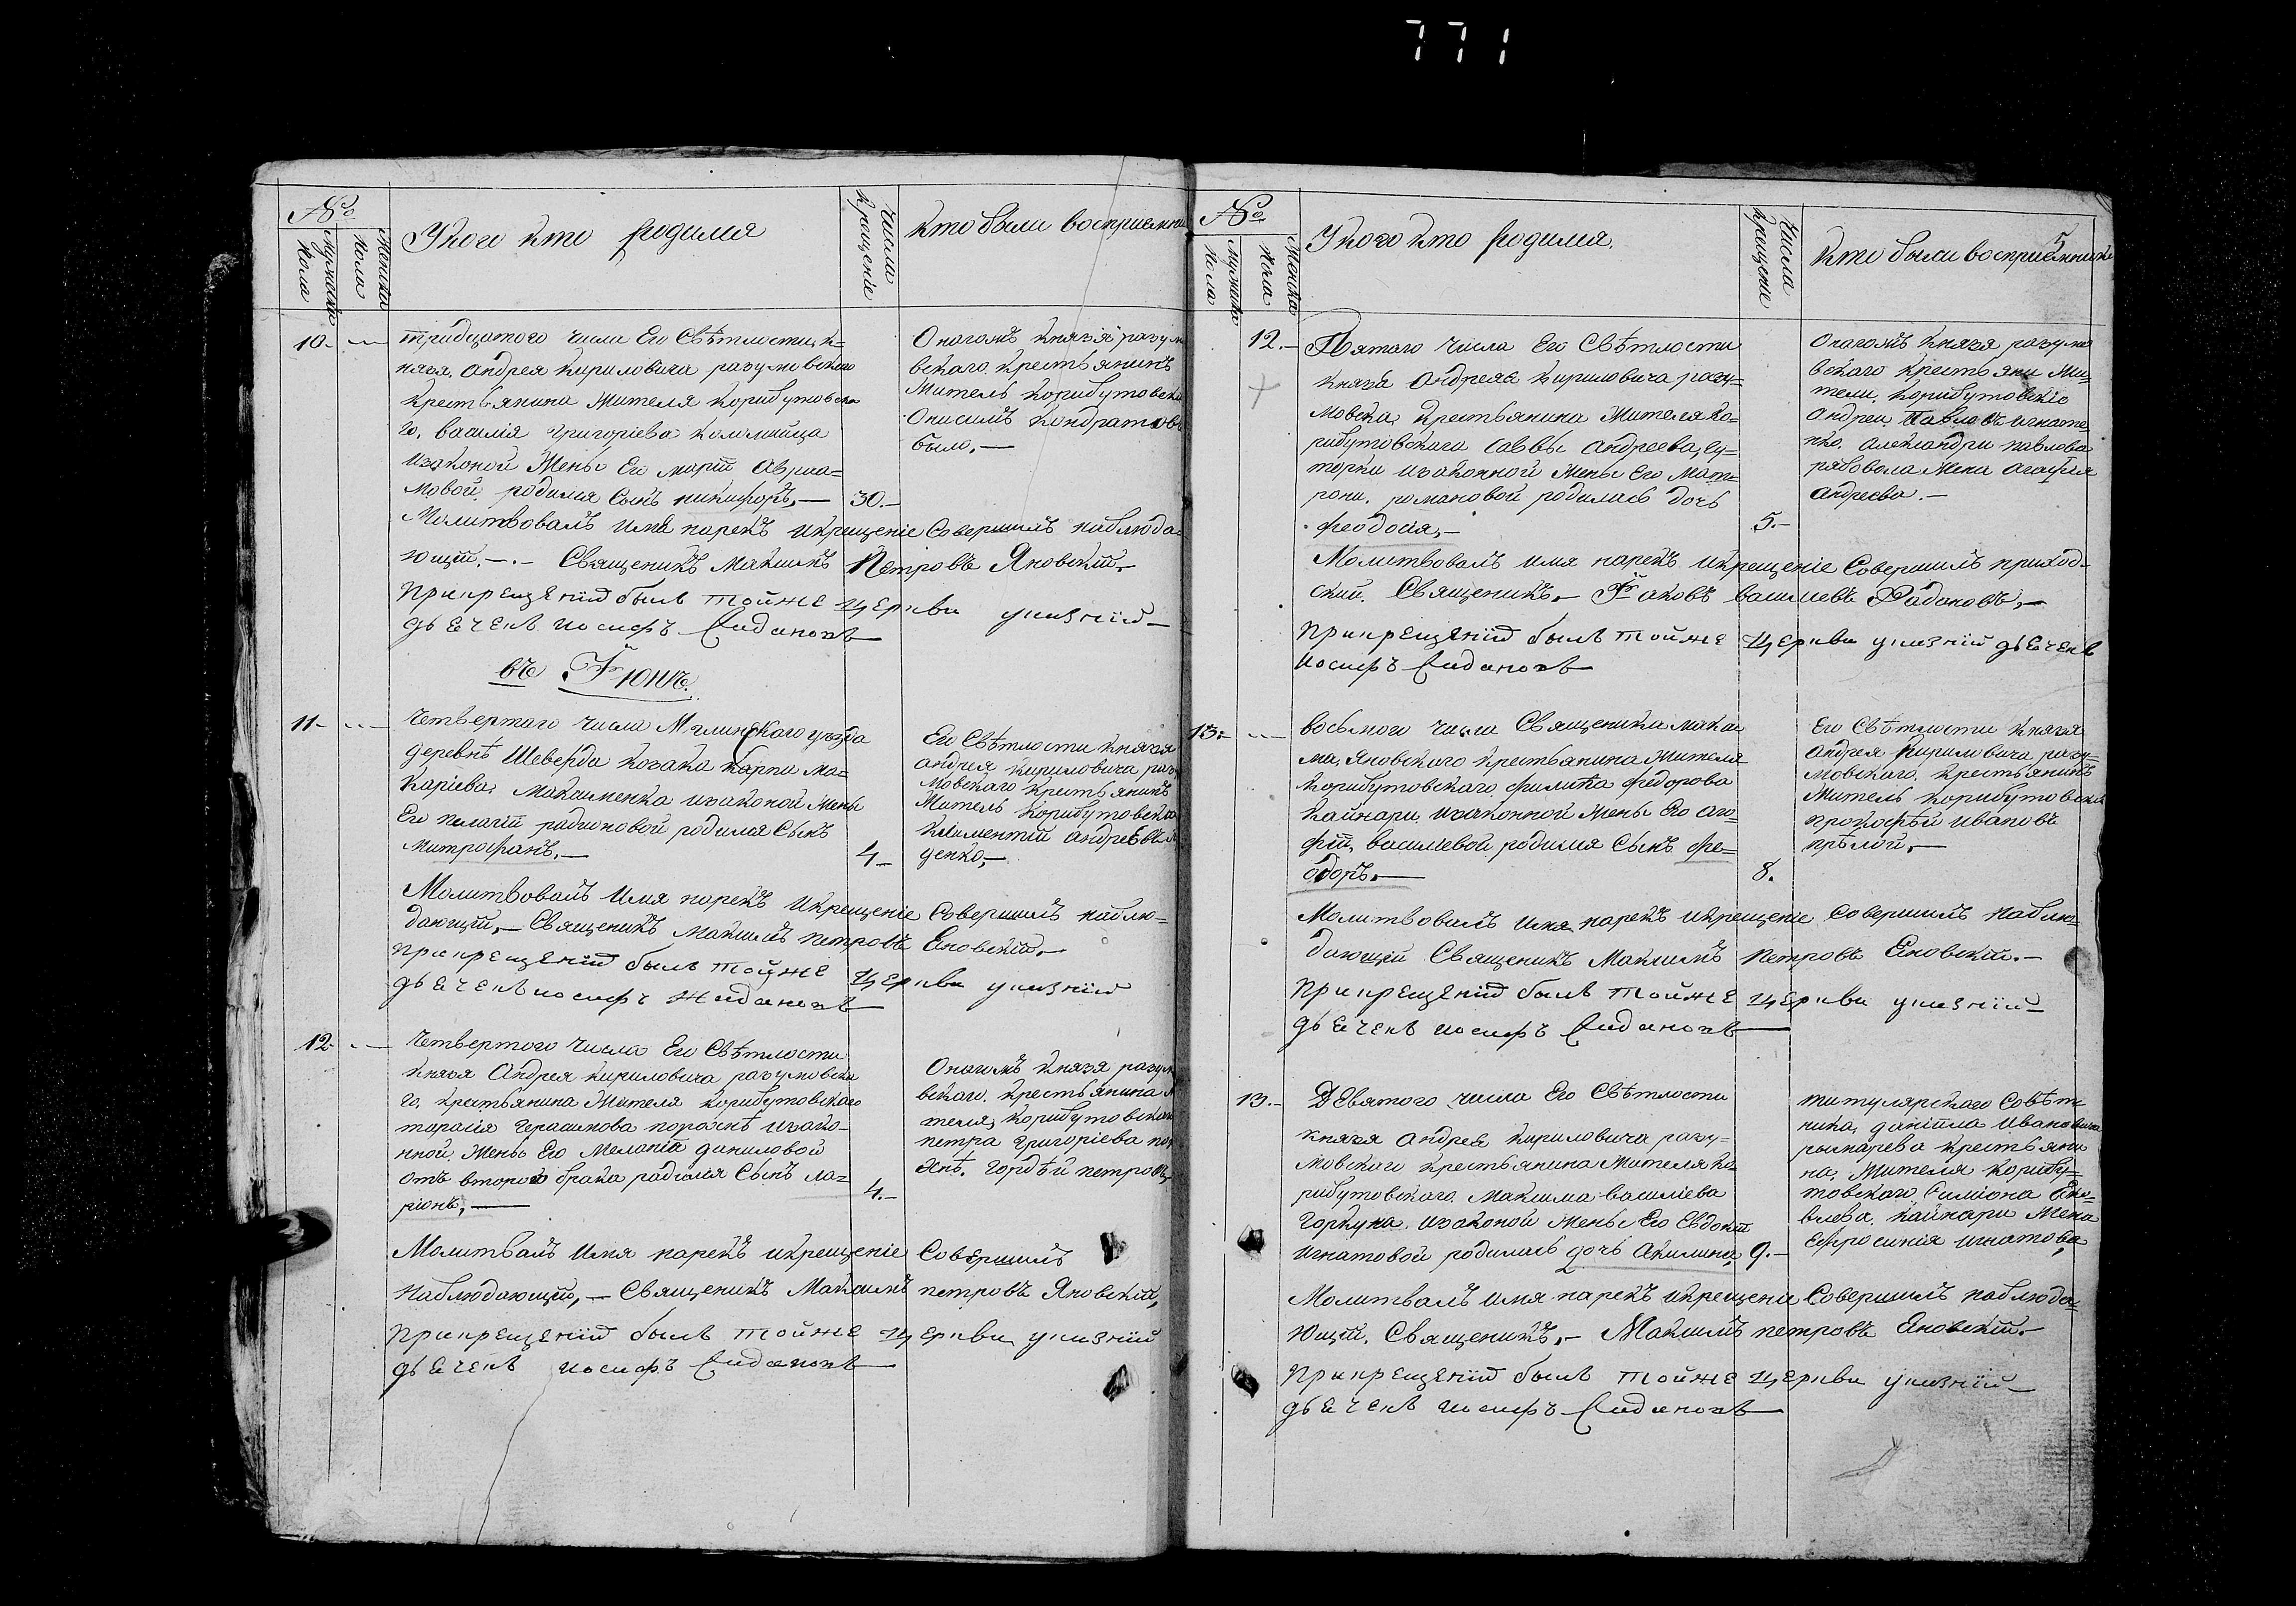 771
№
Мужеска
пола
Женска
пола
У кого кто родился
Числа
крещение
Кто были восприемни
10.
тридцатого числа Его Свѣтлости, к=
нязя, Андрея Кириловича разумовского
Крестьянина Жителя Корибутовска
го, василія григоріева
изаконой Жены Его марiи Авраа=
мовой, родился Сынъ никифоръ,—
30.—
Онагожъ Князя разум
вскаго, крестьянинъ
Житель Корибутовск
Онисимъ Кондратовъ
было.—
Молитвовалъ имя нарекъ икрещеніе Совершилъ наблюда
ющій.—.— Священикъ Максимъ Петровъ Яновскій,—
Прикрещеніи былъ тойже церкви указній—
дьячекъ иосифъ
въ Іюнѣ.
11.
четвертаго числа Мглинского уезда
деревнѣ Шеверда козака Карпа ма=
каріева, максименка изаконой Жены
Его пелагіи радионовой родился Сынъ
митрофанъ,—
4—
Его Свѣтлости Князя
андрея Кириловича раз
мовскаго Крестьянинъ
Житель Корибутовск
климентій андреевъ
денко,—
Молитвовалъ Имя нарекъ Икрещеніе Совершилъ наблю=
дающій,— Священикъ Максимъ петровъ Еновскій,—
Прикрещеніи былъ тойже церкви указній
дьячекъ иосифъ
12.
Четвертого числа Его Свѣтлости
князя Андрея кириловича разумовска
го, крестьянина Жителя корибутовскаго
тарасія герасимова порохнѣ изако=
нной Жены Его Меланіи даниловой
отъ второго брака родился Сынъ ла=
ріонъ,—
4.—
Онагожъ Князя разум
вскаго, крестьянина
теля, корибутовскаг
петра григоріева пор
хнѣ, гордѣй петровъ
Молитвалъ Имя нарекъ икрещеніе Совершилъ
Наблюдающій,— Священикъ Максимъ петровъ Яновскій,
Прикрещеніи былъ тойже церкви указній
дьячекъ иосифъ
№
Мужеска
пола
Женска
пола
У кого кто родился.
Числа
крещение
Кто были восприемники
5
12.—
Пятаго числа Его Свѣтлости
князя Андрея Кириловича разу=
мовска, крестьянина Жителя ко=
рибутовского саввы андреева, су=
торки изаконной Жены Его мат=
рони, романовой родилась дочь
феодосія,—
5.—
Онагожъ Князя разумо
вскаго крестьяни Жи=
тели, корибутовскіе
Андреи Павловъ игнате
нко, александри павлова
рябовола Жена агафія
андреева.—
Молитвовалъ имя нарекъ икрещеніе Совершилъ приход=
скій, Священикъ,— Іаковъ василиевъ
Прикрещеніи былъ тойже церкви указній дьячекъ
иосифъ
13.
восьмого числа Священика макси
ма, Яновского крестьянина Жителя
Корибутовского, филипа федорова
кайнари, изаконной Жены Его ага=
фіи, василиевой родился Сынъ фе=
одоръ,—
8.
Его Свѣтлости Князя
андрея Кириловича разу=
мовскаго, крестьянинъ
Житель корибутовск
прокофѣй ивановъ
Молитвовалъ имя нарекъ икрещеніе Совершилъ Наблю=
дающій Священикъ Максимъ петровъ Еновскій.—
Прикрещеніи былъ тойже церкви указній—
дьячекъ иосифъ
13.—
Девятого числа Его Свѣтлости
князя андрея кириловича разу=
мовского крестьянина Жителя ко
рибутовскаго, максима василіева
горкуна, изаконой жены Его Евдокіи
игнатовой родилась дочь Акилина,
9.—
титулярскаго Совѣт
ника, даніила Иванович
крестьяни
на, Жителя корибу=
товскаго, симіона Еко=
влева, кайнари Жена
Ефросинія игнатова,
Молитвалъ имя нарекъ икрещение Совершилъ наблюда=
ющій, Священикъ,— Максимъ петровъ Еновскій.—
Прикрещеніи былъ тойже церкви указній—
дьячекъ иосифъ